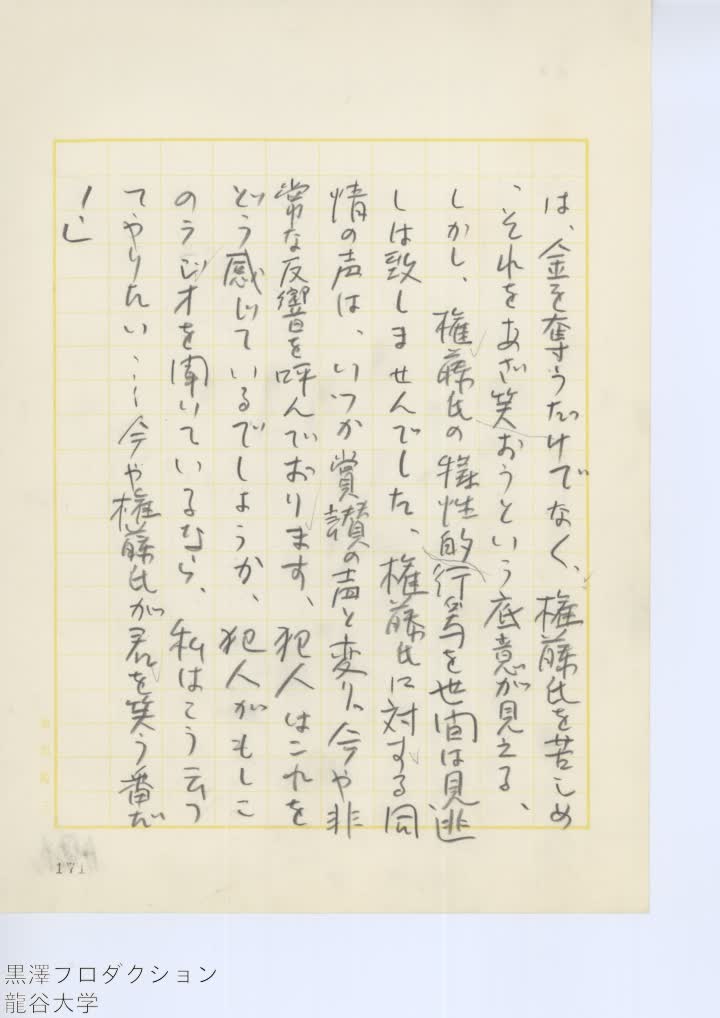 は、金を奪うだけでなく、権藤氏を苦しめ
、それをあざ笑おうという底意が見える、
しかし、権藤氏の犠牲的行為を世間は見逃
しは致しませんでした、権藤氏に対する同
情の声は、いつか賞讃の声と変り、今や非
常な反響を呼んでおります、犯人はこれを
どう感じているでしょうか、犯人がもしこ
のラジオを聞いているなら、私はこう云っ
てやりたい……今や権藤氏が君を笑う番だ
！」
171
黒澤プロダクション
龍谷大学